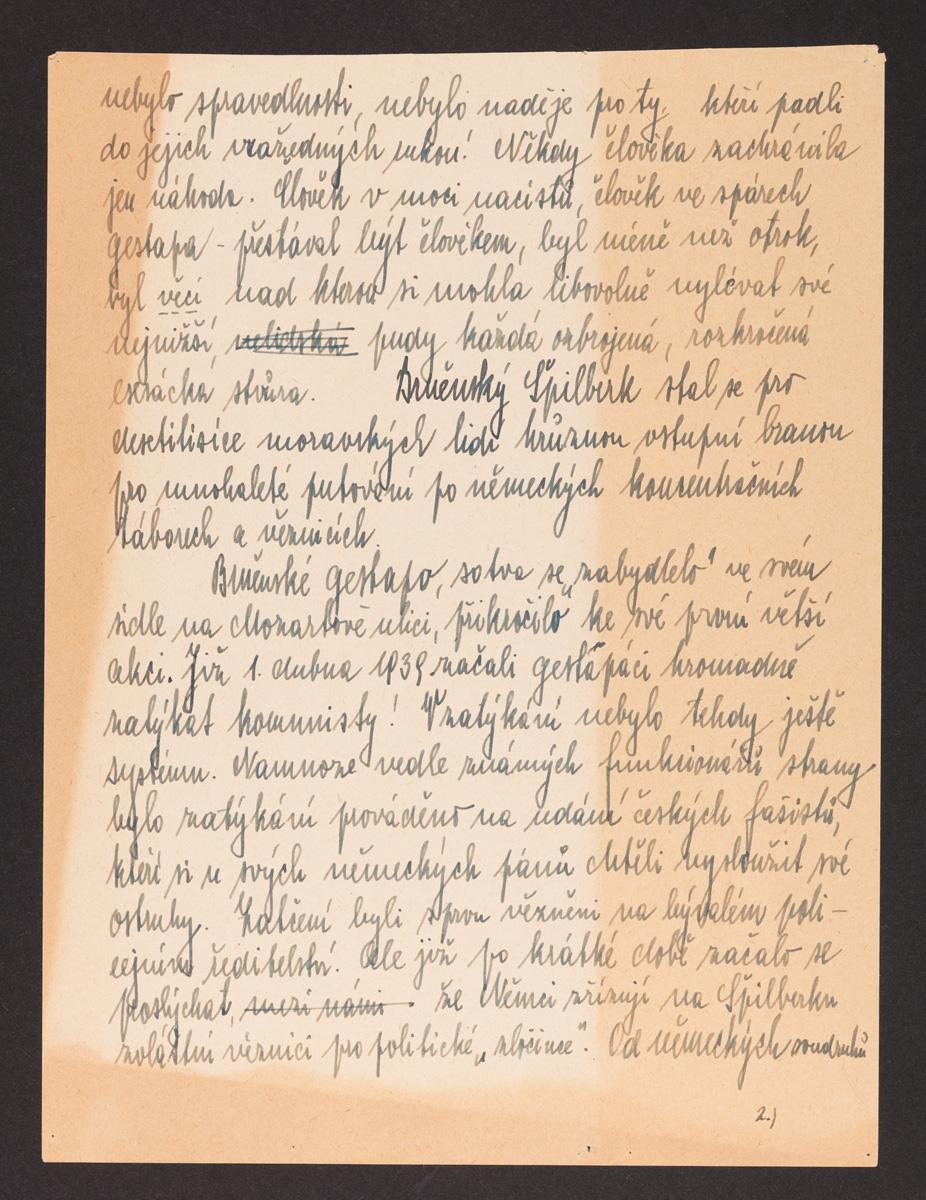 nebylo spravedlnosti, nebylo naděje pro ty kteří padli
do jejich vražedných rukou! Někdy člověka zachránila
jen náhoda. Člověk v moci nacistů, člověk ve spárech
gestapa - přestával být člověkem, byl méně než otrok,
byl věcí nad kterou si mohla libovolně vylévat své
nejnižší, nelidská pudy každá ozbrojená, rozkročená
esesácká stvůra. Brněnský Špilberk stal se pro
desetitisíce moravských lidí hrůznou vstupní branou
pro mnohaleté putování po německých koncentračních
táborech a věznicích.
Brněnské gestapo, sotva se „zabydlelo" ve svém
sídle na Mozartově ulici, přikročilo ke své první větší
akci. Již 1. dubna 1939 začali gestapáci hromadně
zatýkat komunisty! V zatýkání nebylo tehdy ještě
systému. Namnoze vedle známých funkcionářů strany
bylo zatýkání prováděno na udání českých fašistů,
kteří si u svých německých pánů chtěli vysloužit své
ostruhy. Zatčení byli zprvu vězněni na bývalém poli-
cejním ředitelství. Ale již po krátké době začalo se
proslýchat, mezi námi že Němci zřizují na Špilberku
zvláštní věznici pro politické „zločince". Od německých soudruhů
2.)